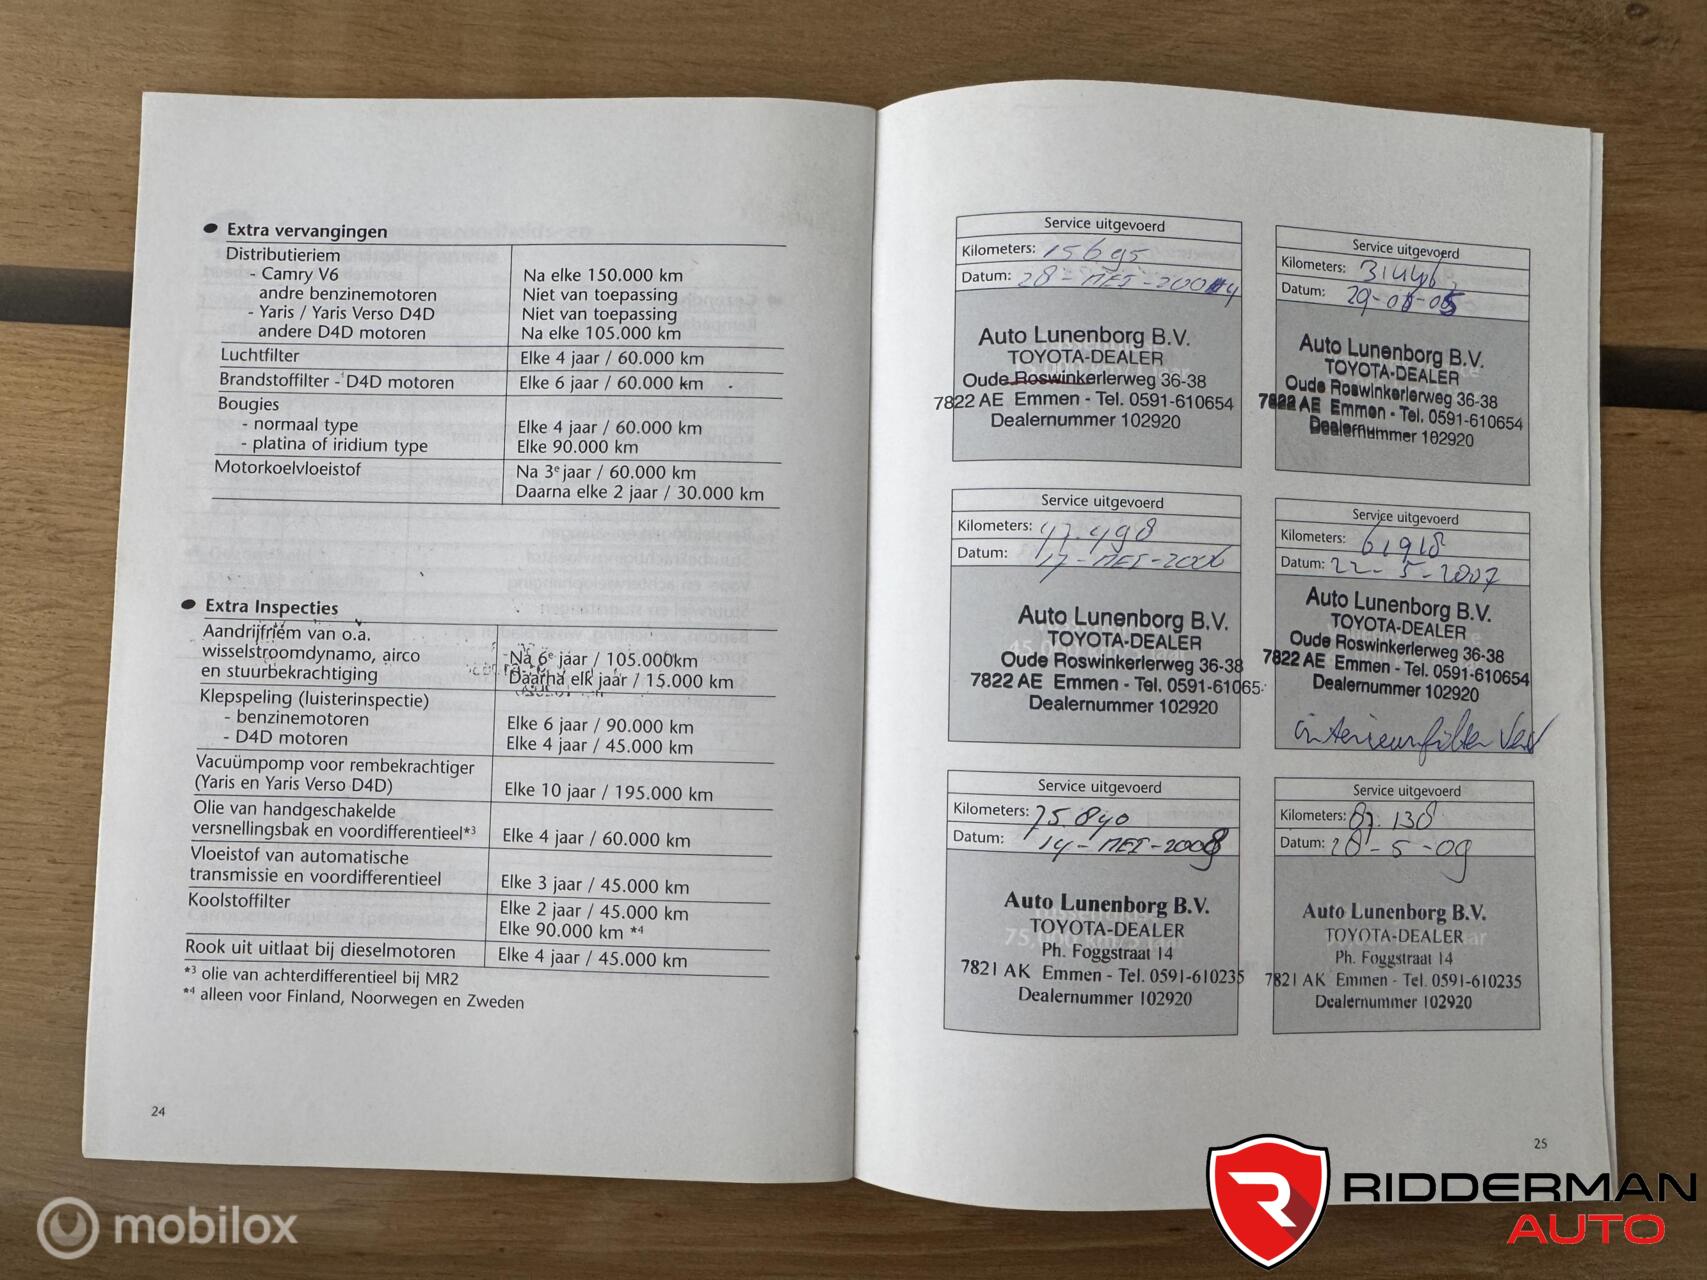 Extra vervangingen
Distributieriem
- Camry V6 Na elke 150.000 km
andre benzinemotoren Niet van toepassing
- Yaris / Yaris Verso D4D Niet van toepassing
andere D4D motoren Na elke 105.000 km
Luchtfilter Elke 4 jaar / 60.000 km
Brandstoffilter - D4D motoren Elke 6 jaar / 60.000 km
Bougies
- normaal type Elke 4 jaar / 60.000 km
- platina of iridium type Elke 90.000 km
Motorkoelvloeistof Na 3e jaar / 60.000 km
Daarna elke 2 jaar / 30.000 km
Extra Inspecties
Aandrijfriem van o.a.
wisselstroomdynamo, airco Na 6e jaar / 105.000km
en stuurbekrachtiging Daarna elk jaar / 15.000 km
Klepspeling (luisterinspectie)
- benzinemotoren Elke 6 jaar / 90.000 km
- D4D motoren Elke 4 jaar / 45.000 km
Vacuümpomp voor rembekrachtiger
(Yaris en Yaris Verso D4D) Elke 10 jaar / 195.000 km
Olie van handgeschakelde
versnellingsbak en voordifferentieel*3 Elke 4 jaar / 60.000 km
Vloeistof van automatische
transmissie en voordifferentieel Elke 3 jaar / 45.000 km
Koolstoffilter Elke 2 jaar / 45.000 km
Elke 90.000 km *4
Rook uit uitlaat bij dieselmotoren Elke 4 jaar / 45.000 km
*3 olie van achterdifferentieel bij MR2
*4 alleen voor Finland, Noorwegen en Zweden
24
Service uitgevoerd
Kilometers: 15695
Datum: 28-MEI-2004
Auto Lunenborg B.V.
TOYOTA-DEALER
Oude Roswinkerlerweg 36-38
7822 AE Emmen - Tel. 0591-610654
Dealernummer 102920
Service uitgevoerd
Kilometers:
Datum:
Auto Lunenborg B.V.
TOYOTA-DEALER
Oude Roswinkerlerweg 36-38
7822 AE Emmen - Tel. 0591-610654
Dealernummer 102920
Service uitgevoerd
Kilometers: 47.498
Datum: 17-MEI-2006
Auto Lunenborg B.V.
TOYOTA-DEALER
Oude Roswinkerlerweg 36-38
7822 AE Emmen - Tel. 0591-61065
Dealernummer 102920
Service uitgevoerd
Kilometers: 61918
Datum: 22-5-2007
Auto Lunenborg B.V.
TOYOTA-DEALER
Oude Roswinkerlerweg 36-38
7822 AE Emmen - Tel. 0591-610654
Dealernummer 102920
interieurfilter
Service uitgevoerd
Kilometers: 75.840
Datum: 14-MEI-2008
Auto Lunenborg B.V.
TOYOTA-DEALER
Ph. Foggstraat 14
7821 AK Emmen - Tel. 0591-610235
Dealernummer 102920
Service uitgevoerd
Kilometers: 87.138
Datum: 28-5-09
Auto Lunenborg B.V.
TOYOTA-DEALER
Ph. Foggstraat 14
7821 AK Emmen - Tel. 0591-610235
Dealernummer 102920
25
mobilox
RIDDERMAN
AUTO